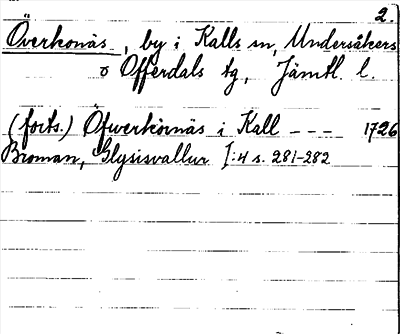 2.
Överkonäs, by i Kalls sn, Undersåkers
o Offerdals tg, Jämtl. l.
(forts.) Öfwerkönäs i Kall --- 1726
Broman, Glysisvallur I:4 s. 281-282